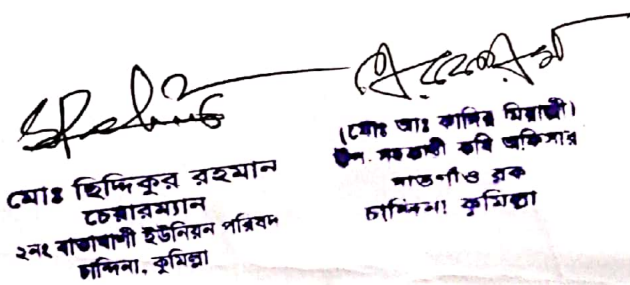 মোঃ ছিদ্দিকুর রহমান
চেয়ারম্যান
২নং বাতাঘাসী ইউনিয়ন পরিষদ
চান্দিনা, কুমিল্লা
(মোঃ আঃ কাদির মিয়াজী)
উপ. সহকারী কৃষি অফিসার
ব্লক
চান্দিনা কুমিল্লা